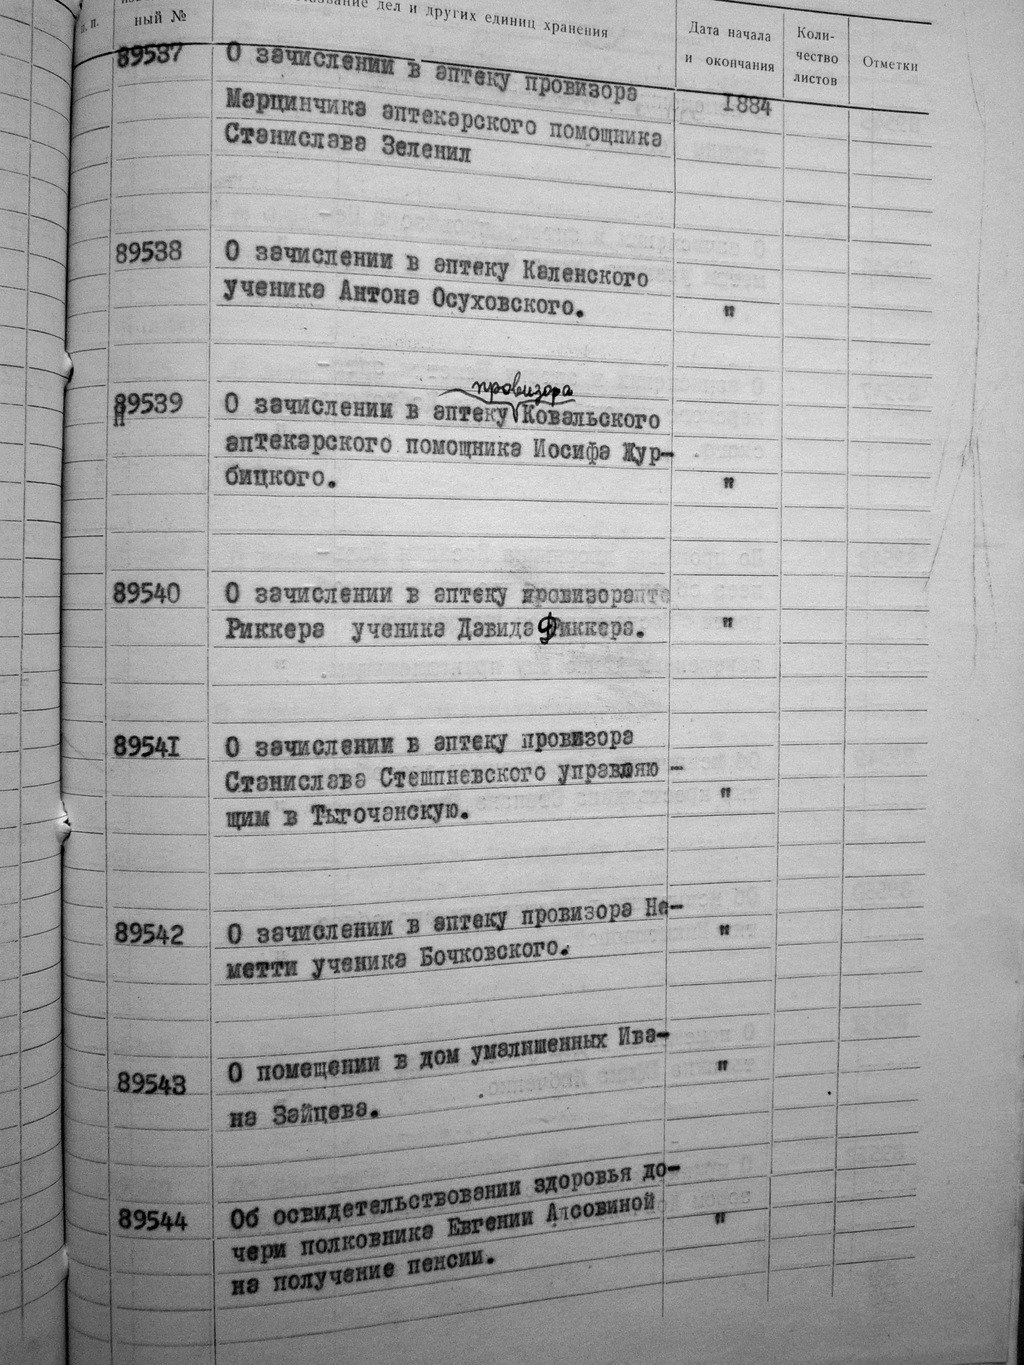 п. п.
ный №
дел и других единиц хранения
Дата начала
и окончания
Коли-
чество
листов
Отметки
89537
О зачислении в аптеку провизора
1884
Марцинчика аптекарского помощника
Станислава Зеленил
89538
О зачислении в аптеку Каленского
ученика Антона Осуховского.
"
провизора
89539
О зачислении в аптеку Ковальского
аптекарского помощника Иосифа Жур-
бицкого.
"
89540
О зачислении в аптеку провизора
Риккера ученика Давида Фиккера.
"
89541
О зачислении в аптеку провизора
Станислава Стешпневского управляю -
щим в Тыгочанскую.
"
89542
О зачислении в аптеку провизора На-
метти ученика Бочковского.
"
89543
О помещении в дом умалишенных Ива-
на Зайцева.
"
89544
Об освидетельствовании здоровья до-
чери полковника Евгении Алсовиной
на получение пенсии.
"